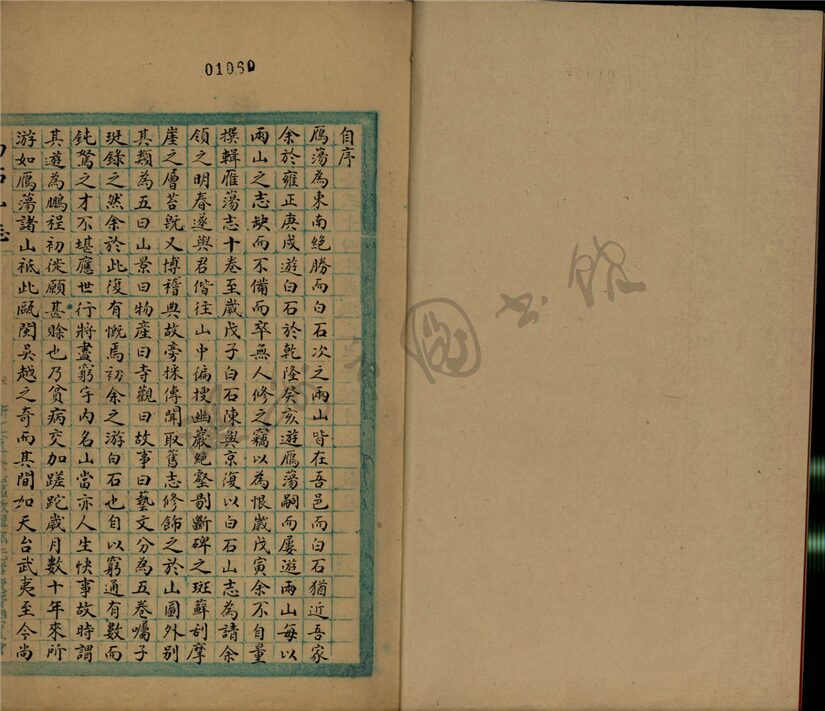 01069
自序
鴈蕩為東南絕勝而白石次之兩山皆在吾邑而白石猶近吾家
余於雍正庚戌遊白石於乾隆癸亥遊鴈蕩嗣而屢遊兩山每以
兩山之志缺而不備而卒無人修之竊以為恨歲戊寅余不自量
撰輯雁蕩志十卷至歲戊子白石陳輿京復以白石山志為請余
領之明春遂與君偕往山中徧搜幽巖絕壑剔斷碑之斑蘚刮摩
崖之層苔既又博稽典故旁採傳聞取舊志修飾之於山圖外別
其類為五曰山景曰物產曰寺觀曰故事曰藝文分為五卷囑子
珽錄之然余於此復有慨焉初余之游白石也自以窮通有數而
鈍駑之才不堪應世行將盡窮宇內名山當亦人生快事故時謂
其遊為鵬程初徙願甚賒也乃貧病交加蹉跎歲月數十年來所
游如鴈蕩諸山祗此甌閩吳越之奇而其間如天台武夷至今尚
白石山志
圖書館